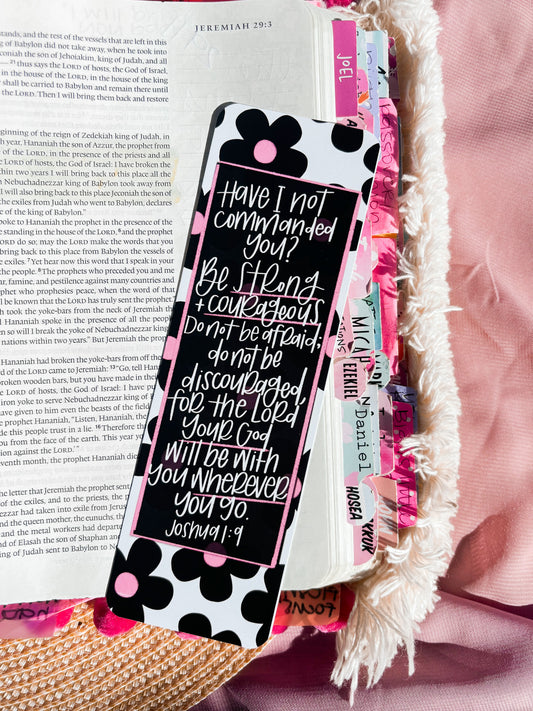 JEREMIAH 29:3
tands, and the rest of the vessels that are left in this
g of Babylon did not take away, when he took into
coniah the son of Jehoiakim, king of Judah, and all
21 thus says the LORD of hosts, the God of Israel,
in the house of the LORD, in the house of the king
shall be carried to Babylon and remain there until
the LORD. Then I will bring them back and restore
ginning of the reign of Zedekiah king of Judah, in
year, Hananiah the son of Azzur, the prophet from
of the LORD, in the presence of the priests and all
LORD of hosts, the God of Israel: I have broken the
thin two years I will bring back to this place all the
Nebuchadnezzar king of Babylon took away from
will also bring back to this place Jeconiah the son of
the exiles from Judah who went to Babylon, declares
of the king of Babylon."
oke to Hananiah the prophet in the presence of the
standing in the house of the LORD, 6 and the prophet
LORD do so; may the LORD make the words you
bring back to this place from Babylon the vessels of
exiles. 7 Yet hear now this word that I speak in your
the people. 8 The prophets who preceded you and me
ar, famine, and pestilence against many countries and
phet who prophesies peace, when the word of that
l be known that the LORD has truly sent the prophet.
h took the yoke-bars from the neck of Jeremiah the
Hananiah spoke in the presence of all the people,
n so will I break the yoke of Nebuchadnezzar king
nations within two years." But Jeremiah the prophet
Hananiah had broken the yoke-bars from off the
of the LORD came to Jeremiah: 13 "Go, tell Hananiah,
roken wooden bars, but you have made in their
e LORD of hosts, the God of Israel: I have put
iron yoke to serve Nebuchadnezzar king of
ave given to him even the beasts of the field
the prophet Hananiah, "Listen, Hananiah, the
de this people trust in a lie. 16 Therefore
you from the face of the earth. This year
lion against the LORD.'"
eventh month, the prophet Hananiah died.
the letter that Jeremiah the prophet
of the exiles, and to the priests, the
ezzar had taken into exile from Jerusalem
and the queen mother, the eunuchs, the
and the metal workers had departed
d of Elasah the son of Shaphan and
ng of Judah sent to Babylon to
Have I not
commanded
you?
Be strong
+ courageous
Do not be afraid;
do not be
discouraged,
for the Lord
your God
will be with
you wherever
you go.
Joshua 1:9
JOEL
MICAH
EZEKIEL
Daniel
HOSEA